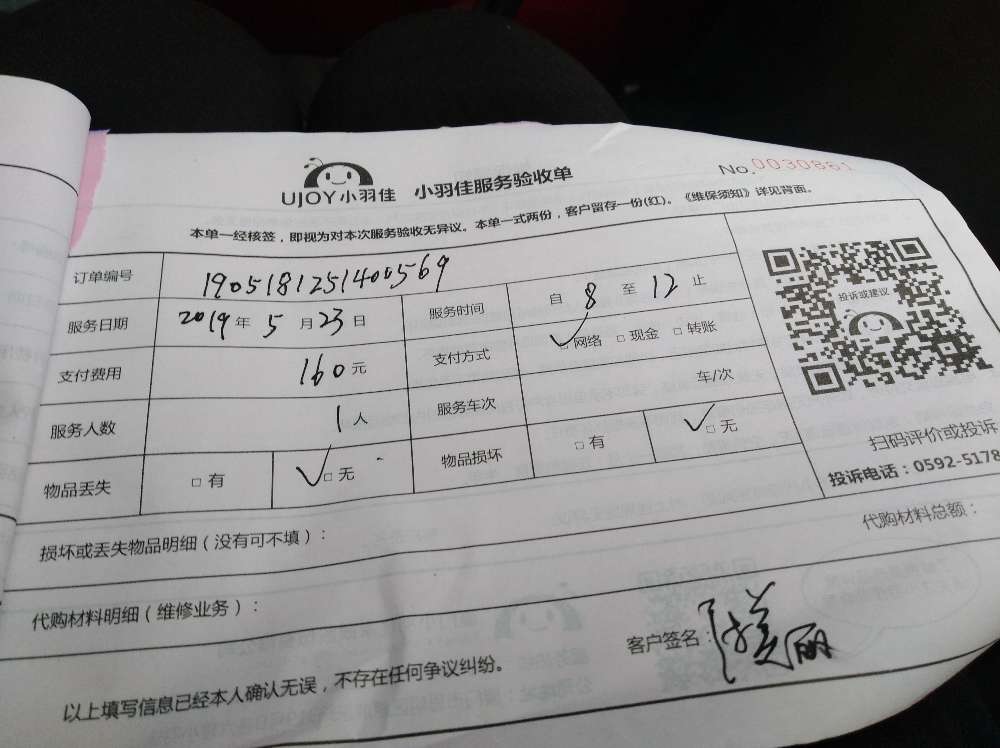 UJOY小羽佳 小羽佳服务验收单
No.0030861
本单一经核签，即视为对本次服务验收无异议。本单一式两份，客户留存一份(红)。《维保须知》详见背面。
订单编号 1905181251400569
服务日期 2019年5月23日 服务时间 自8至12止
支付费用 160元 支付方式 □网络 □现金 □转账
服务人数 1人 服务车次 车/次
物品丢失 □有 □无 物品损坏 □有 □无
投诉或建议
扫码评价或投诉
投诉电话：0592-5178
损坏或丢失物品明细（没有可不填）：
代购材料总额：
代购材料明细（维修业务）：
客户签名：
以上填写信息已经本人确认无误，不存在任何争议纠纷。